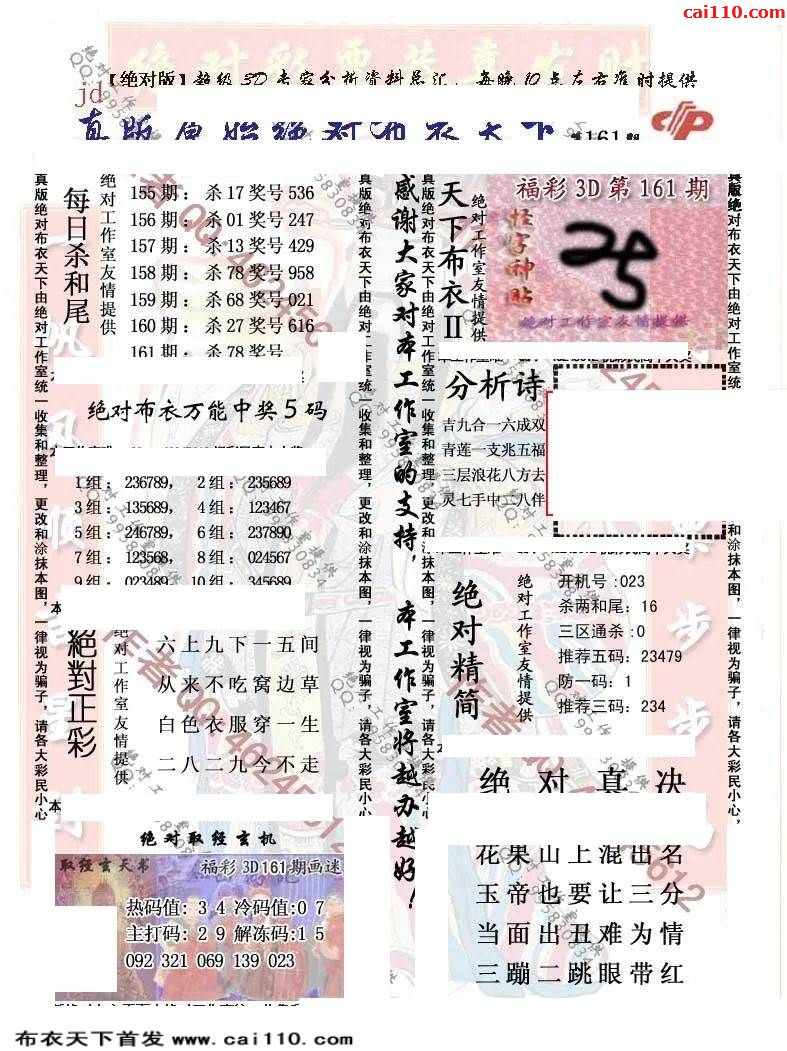 cai110.com
【绝对版】超级3D专家分析资料总汇，每晚10点左右准时提供
jd
真版原始绝对布衣天下
第161期
真版绝对布衣天下由绝对工作室统一收集和整理，更改和涂抹本图，一律视为骗子，请各大彩民小心，
每日杀和尾
绝对工作室友情提供
155期：杀17奖号536
156期：杀01奖号247
157期：杀13奖号429
158期：杀78奖号958
159期：杀68奖号021
160期：杀27奖号616
161期：杀78奖号
绝对布衣万能中奖5码
1组：236789，2组：235689
3组：135689，4组：123467
5组：246789，6组：237890
7组：123568，8组：024567
9组：023489，10组：345689
絕對正彩
绝对工作室友情提供
六上九下一五间
从来不吃窝边草
白色衣服穿一生
二八二九今不走
绝对取经玄机
取经玄天书
福彩3D161期画迷
热码值：34冷码值:07
主打码：29解冻码:15
092 321 069 139 023
真版绝对布衣天下由绝对工作室统一收集和整理，更改和涂抹本图，一律视为骗子，请各大彩民小心，
感谢大家对本工作室的支持，本工作室将越办越好！
真版绝对布衣天下由绝对工作室统一收集和整理，更改和涂抹本图，一律视为骗子，请各大彩民小心，
天下布衣II
绝对工作室友情提供
福彩3D第161期
怪字神贴
25
绝对工作室友情提供
分析诗
吉九合一六成双
青莲一支兆五福
三层浪花八方去
灵七手中二八伴
绝对精简
绝对工作室友情提供
开机号:023
杀两和尾：16
三区通杀:0
推荐五码：23479
防一码：1
推荐三码：234
绝对真决
花果山上混出名
玉帝也要让三分
当面出丑难为情
三蹦二跳眼带红
真版绝对布衣天下由绝对工作室统一收集和整理，更改和涂抹本图，一律视为骗子，请各大彩民小心，
布衣天下首发 www.cai110.com